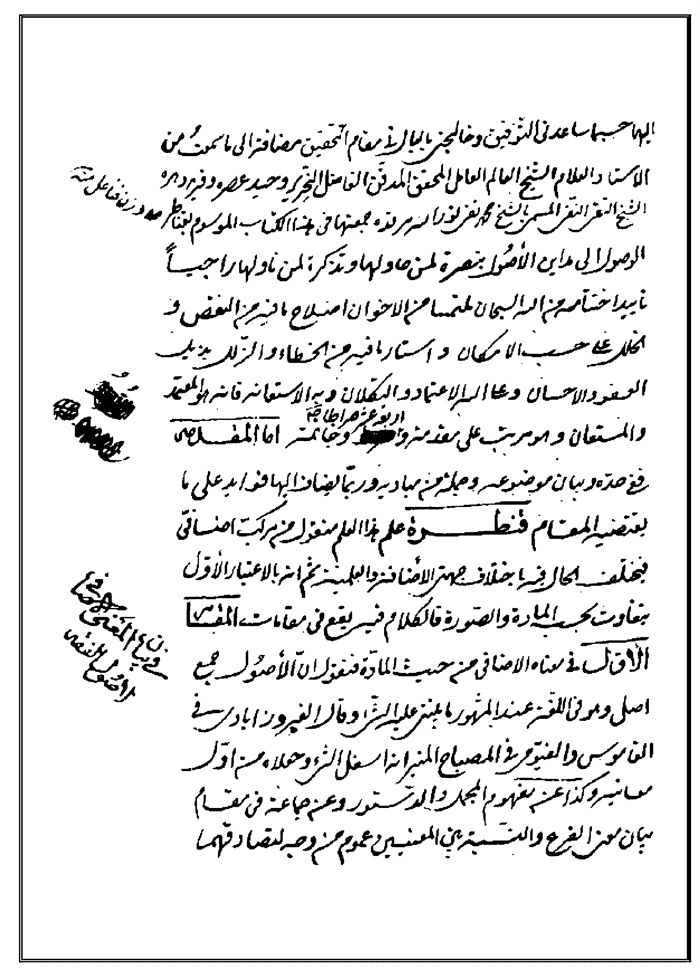 إليها حسبما ساعدني التوفيق وخالجني بالبال في مقام التحقيق مضافة إلى ما سمعتُ من
الأستاد العلام الشيخ العالم العامل المحقق المدقق الفاضل النحرير وحيد عصره وفريد دهره
الشيخ التقي النقي المسمى بالشيخ محمد تقي نور الله مرقده جمعتها في هذا الكتاب الموسوم بقناطر
الوصول إلى مداين الأصُول تبصرة لمن حاولها وتذكرة لمن ناولها راجياً
تأييد اختتامه من الله السبحان ملتمسا من الاخوان اصلاح ما فيه من النقص و
الخلل على حسب الامكان واستار ما فيه من الخطاء والزلل بذيل
العفو والاحسان وعلى الله الاعتماد والتكلان وبه الاستعانة فانه هو المعتمد
والمستعان وهو مرتب على مقدمة و وخاتمة اما المقدمة
ففي حده وبيان موضوعه وجملة من مباديه وربما يضاف إليها فوايد على ما
يقتضيه المقام قنطرة علم هذا العلم منقول من مركب اضافي
فيختلف الحال فيه باختلاف جهتي الأضافة والعلمية ثم انه بالاعتبار الأول
يتفاوت بحسب المادة والصورة فالكلام فيه يقع في مقامات المقام
الأول في معناه الاضافي من حيث المادّة فنقول انّ الأصُول جمع
اصل وهو في اللغة عند المشهور ما يبتنى عليه الشئ وقال الفيروزابادي في
القاموس والفيومي في المصباح المنير انه اسفل الشئ وجعلاه من اول
معانيه وكذا عن مفهوم المجمل والدستور وعن جماعة في مقام
بيان معنى الفرع والنسبة بين المعنيين عموم من وجه لتصادقهما
في بيان المعنى الاضافي
لاصول الفقه